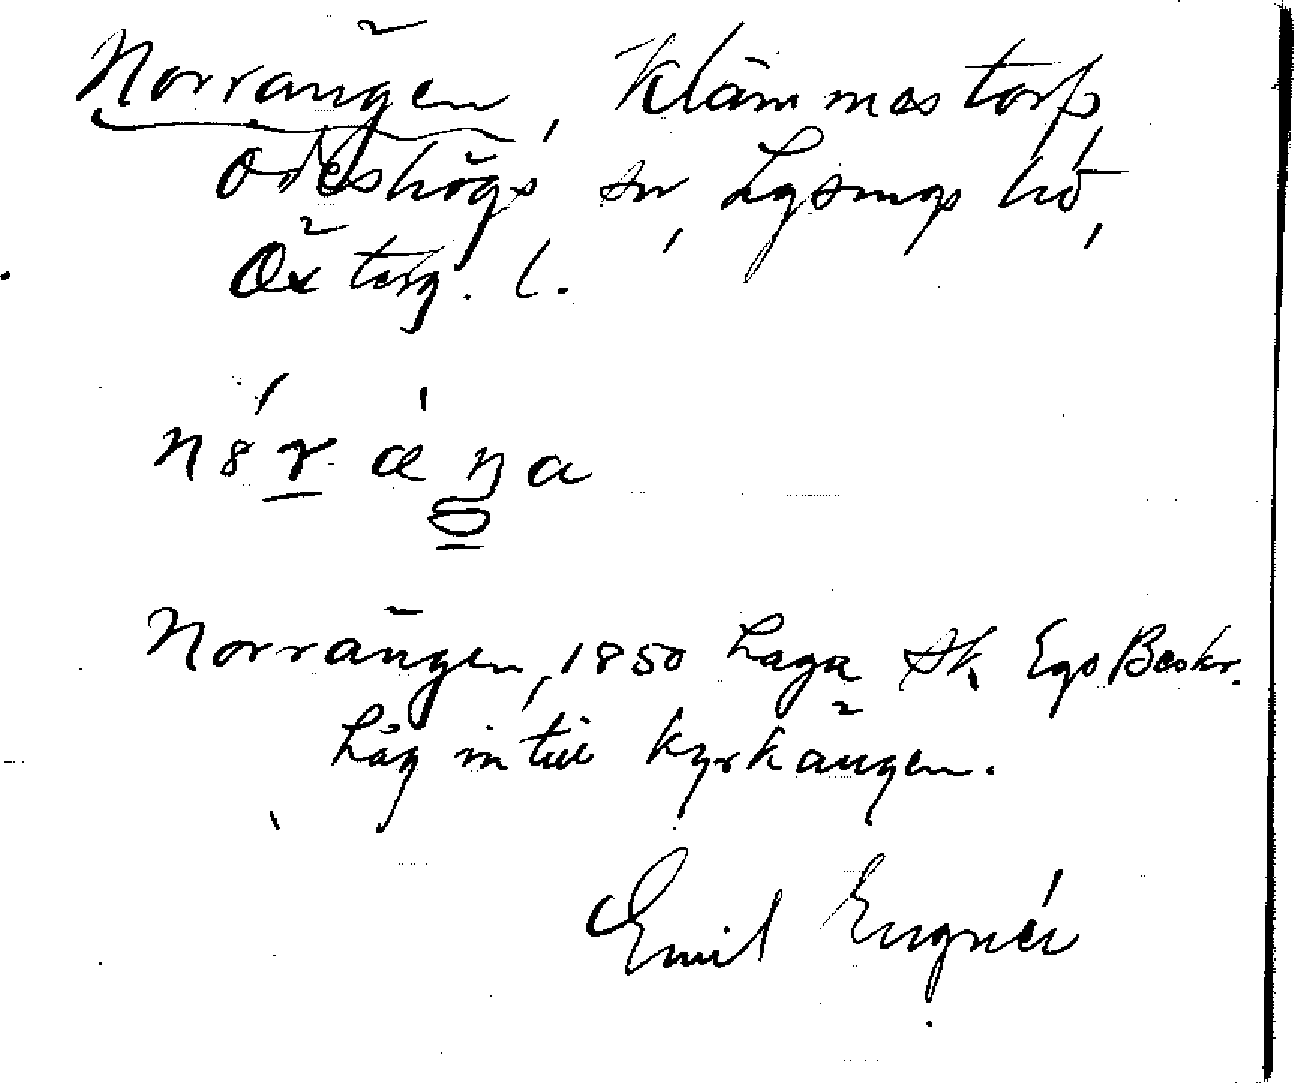 Norrängen, Klämmestorp
Ödeshögs sn, Lysings hd,
Östерg. l.
Norrängen, 1850 Laga Sk Ego Beskr.
Låg intill Kyrkängen.
Emil Engnér